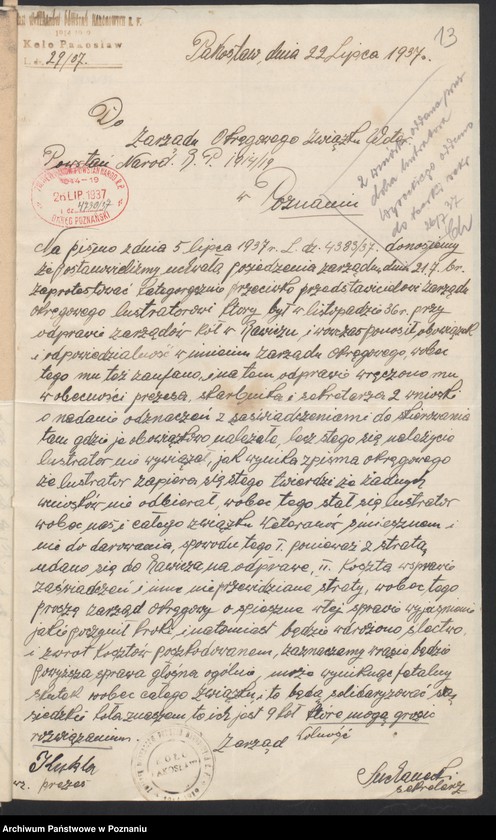 Koło Pakosław
L. dz. 29/37.
13
Pakosław, dnia 22 Lipca 1937r.
Do
Zarządu Okręgowego Związku Weter.
Powstań Narod. R. P. 1914/19
w Poznaniu
26 LIP. 1937
L. dz. 4739/37
OKRĘG POZNAŃSKI
2 wnioski oddane przez
do teczki
26/7 37
Na pismo z dnia 5 lipca 1937r. L. dz. 4383/37. donosimy
że postanowiliśmy uchwałą posiedzenia zarządu, dnia 21.7. br.
zaprotestować kategorycznie przeciwko przedstawicielowi zarządu
okręgowego lustratorowi który był w listopadzie 36r. przy
odprawie zarządów kół w Rawiczu i wówczas ponosił obowiązek
i odpowiedzialność w imieniu zarządu okręgowego, wobec
tego mu też zaufano, i na tem odprawie wręczono mu
w obecności prezesa, skarbnika i sekretarza 2 wnioski
o nadanie odznaczeń z zaświadczeniami do skierowania
tam gdzie je obowiązkowo należało, lecz z tego się należycie
lustrator nie wywiązał, jak wynika z pisma okręgowego
że lustrator zapiera się z tego twierdzi że żadnych
wniosków nie odbierał, wobec tego stał się lustrator
wobec nas i całego związku Weteranów śmiesznem i
nie do darowania, spowodu tego I. ponieważ z stratą
udano się do Rawicza na odprawę, II. koszta w sprawie
zaświadczeń i inne nieprzewidziane straty, wobec tego
proszą zarząd okręgowy o spieszne w tej sprawie wyjaśnienie
jakie poczynił kroki i natomiast będzie wdrożono śledztwo,
i zwrot kosztów poszkodowanem, zaznaczamy w razie będzie
powyższa sprawa głośna ogólnie, może wyniknąć fatalny
skutek wobec całego Związku, i to będą solidaryzować się
siedzkie koła znaszem to ich jest 9 kół które mogą grozić
rozwiązaniem.
Zarząd
w/z. prezes
sekretarz
Archiwum Państwowe w Poznaniu